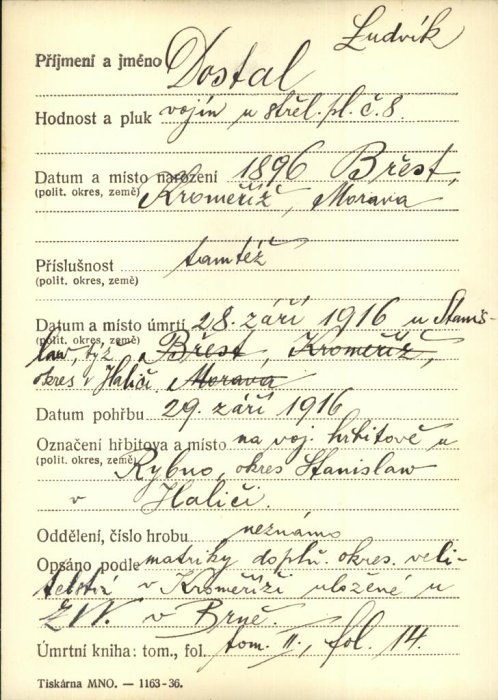 Ludvík
Příjmení a jméno Dostal
Hodnost a pluk vojín u střel. pl. č. 8.
Datum a místo narození 1896 Břest,
(polit. okres, země) Kroměříž, Morava
Příslušnost tamtéž
(polit. okres, země)
Datum a místo úmrtí 28. září 1916 u Stanis-
(polit. okres, země) law, týž Břest, Kroměříž,
okres v Haliči. Morava
Datum pohřbu 29. září 1916
Označení hřbitova a místo na voj. hřbitově u
(polit. okres, země) Rybno, okres Stanislaw
v Haliči.
Oddělení, číslo hrobu neznámo
Opsáno podle matriky doplň. okres. veli-
telství v Kroměříži uložené u
ZVV. v Brně.
Úmrtní kniha: tom., fol. tom. II., fol. 14.
Tiskárna MNO. — 1163-36.